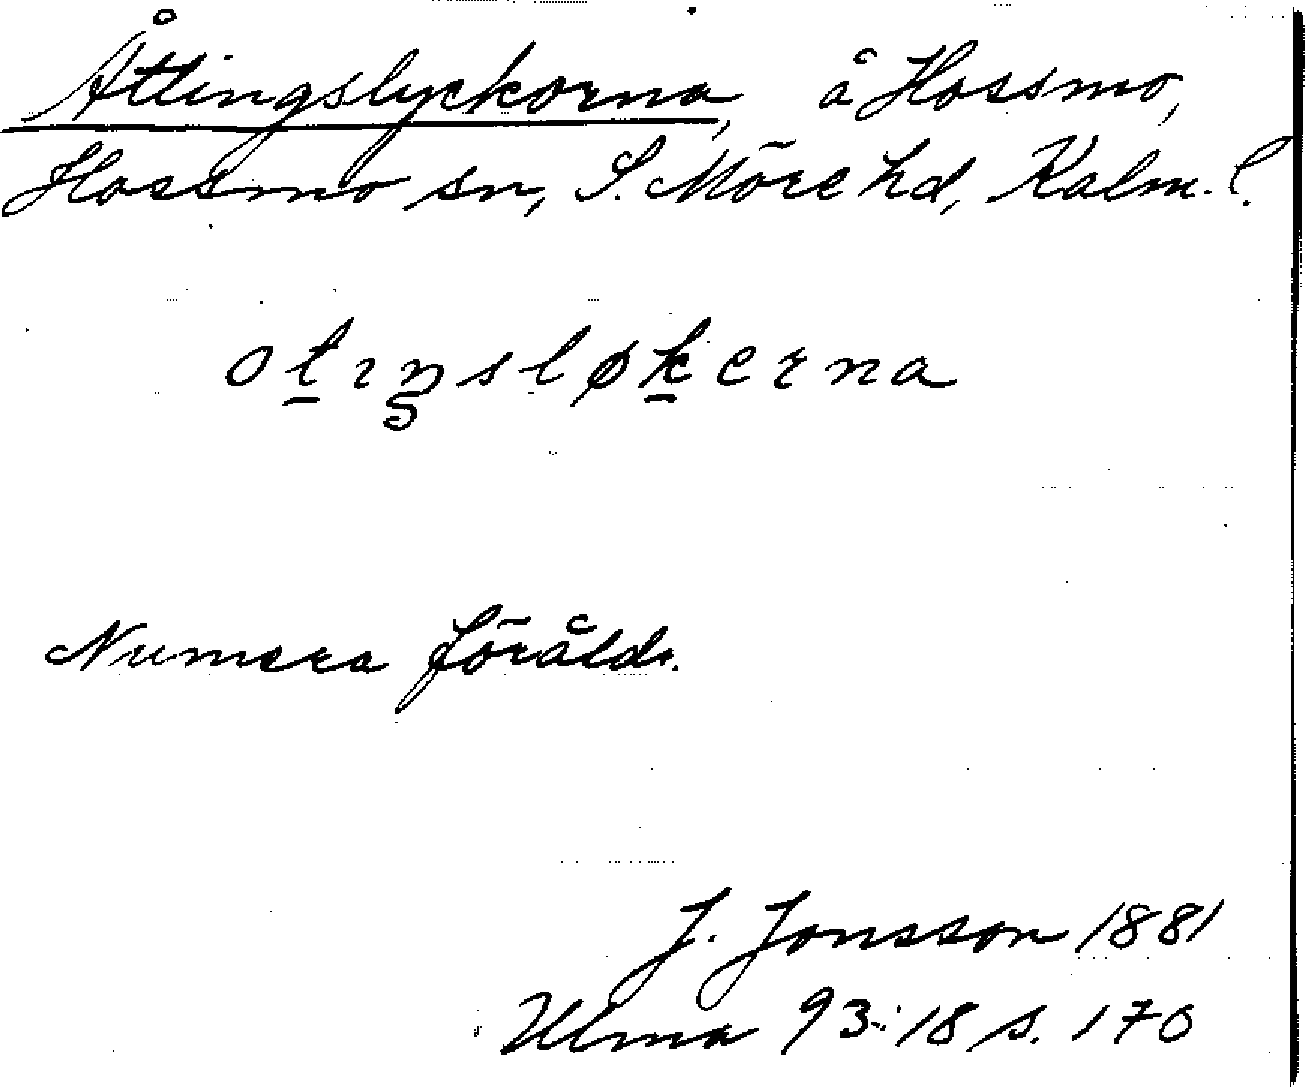 Åttingslyckorna, å Hossmo,
Hossmo sn, S. Möre hd, Kalm. l.
otıŋsløkerna
Numera föråld.
J. Jonsson 1881
Ulma 93:18 s. 170